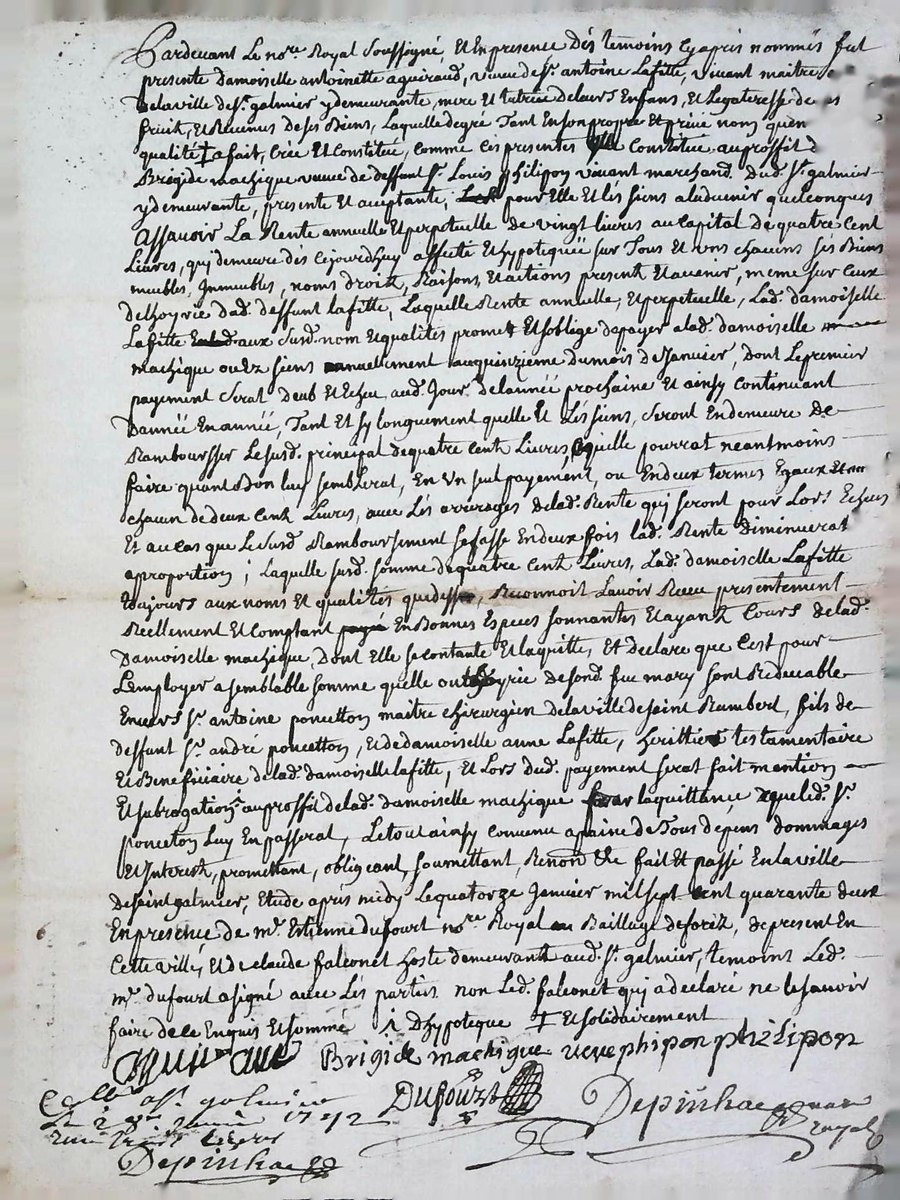 Pardevant Le no.re Royal Soussigné, Et En presence Dés temoins Cyaprés nommés fut
presente damoiselle antoinette aguiraud, veuve de Sr. antoine Lafitte, vivant maitre
delaville de St. galmier y demeurante, mere Et tutrice delaurs Enfans, Et Legateresse de
fruit, Et Revenus De ses Biens, Laquelle degré Tant En son propre Et privé nom quen
qualité ‡ a fait, Créé Et Constitué, Comme Ces presentes Constitue au proffit d
Brigide machique veuve de deffunt Sr. Louis philipon vivant marchand Dud. St. galmier
y demeurante, presente Et aceptante, pour Elle Et lés siens aladvenir quelconques
Assavoir La Rente annuelle Et perpetuelle de vingt livres au Capital de quatre Cent
Livres, qui demeure dés Cejourdhuy affecté Et hypotequéé sur Tous Et uns chacuns sés Biens
meubles, Immeubles, noms droits, Raisons, Et actions present Et avenir, meme sur Ceux
delhoyrie dud. deffunt lafitte, Laquelle Rente annuelle, Et perpetuelle, Lad. damoiselle
Lafitte aux Susd. nom Et qualités promet Et soblige depayer alad. damoiselle
machique ou Ez siens annuellement au quinziéme dumois de Janvier, dont Le premier
payement Serat deub Et Echeu aud. Jour delannéé prochaine Et ainsy Continuant
Dannéé En annéé, Tant Et sy longuement quelle Et Lés siens, Seront Endemeure de
Rambourser Lesusd. principal dequatre Cent Livres, Cequelle pourrat neantmoins
faire quant Bon luy semblerat, En Un seul payement, ou Endeux termes Egaux Et
chacun de deux Cent Livres, avec Lés arrerages delad. Rente qui seront pour Lors Echeus
Et au Cas que Lesusd Remboursement sefasse Endeux fois lad. Rente diminuerat
aproportion; Laquelle susd. somme dequatre Cent Livres, Lad. damoiselle Lafitte
Toujours aux noms Et qualités que dessus, Reconnoit Lavoir Receu presentement
Reellement Et Comptant En Bonnes Especes sonnantes Et ayant Cours delad.
Damoiselle machique, dont Elle se contante Et laquitte, Et declare que Cest pour
Lemployer a semblable somme quelle ou lhoyrie desond. feu mary sont Redevable
Envers Sr. antoine poncetton maitre chirurgien delaville desaint Rambert, fils de
deffunt Sr. andré poncetton, Et de damoiselle anne Lafitte, herittier testamentaire
Et Beneficiaire delad. damoiselle lafitte, Et Lors dud. payement serat fait mention
Et subrogation au proffit delad. damoiselle machique par laquittance que led. Sr.
ponceton Luy En passerat, Le tout ainsy Convenu apaine de Tous depens dommages
Et Interest, promettant, obligeant, soumettant, Renon &c fait Et passé En laville
desaint galmier, Etude aprés midy Lequatorze Janvier mil sept Cent quarante deux
En presence de mr. Estienne dufourt no.re Royal au Bailliage de forez, depresent En
Cette ville, Et de claude falconet hoste demeurant aud. St. galmier, temoins Led.
mr. dufourt a signé avec Lés parties non Led. falconet qui a declaré ne lesavoir
faire dece Enquis Et sommé Dhypoteque ‡ Et solidairement
Brigide machique veuve phipon philipon
Dufourt
Depinhac
royal
1742
Depinhac